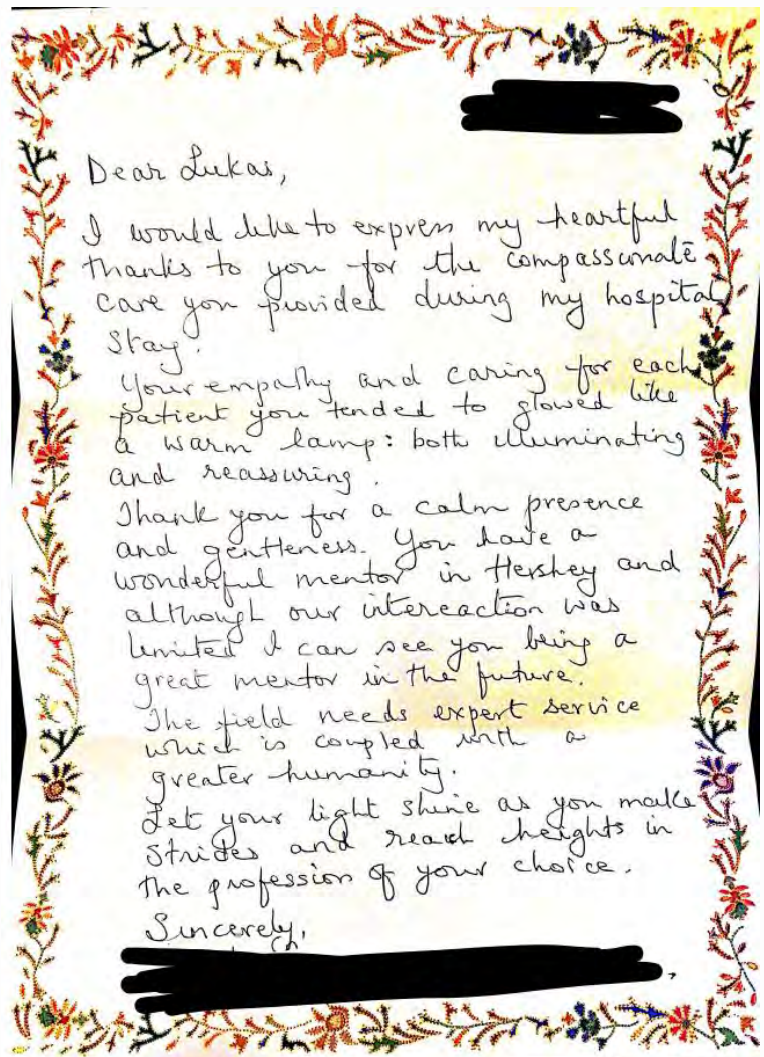 Dear Lukas,
I would like to express my heartful
thanks to you for the compassionate
care you provided during my hospital
stay.
Your empathy and caring for each
patient you tended to glowed like
a warm lamp: both illuminating
and reassuring.
Thank you for a calm presence
and gentleness. You have a
wonderful mentor in Hershey and
although our intereaction was
limited I can see you being a
great mentor in the future.
The field needs expert service
which is coupled with a
greater humanity.
Let your light shine as you make
strides and reach heights in
the profession of your choice.
Sincerely,